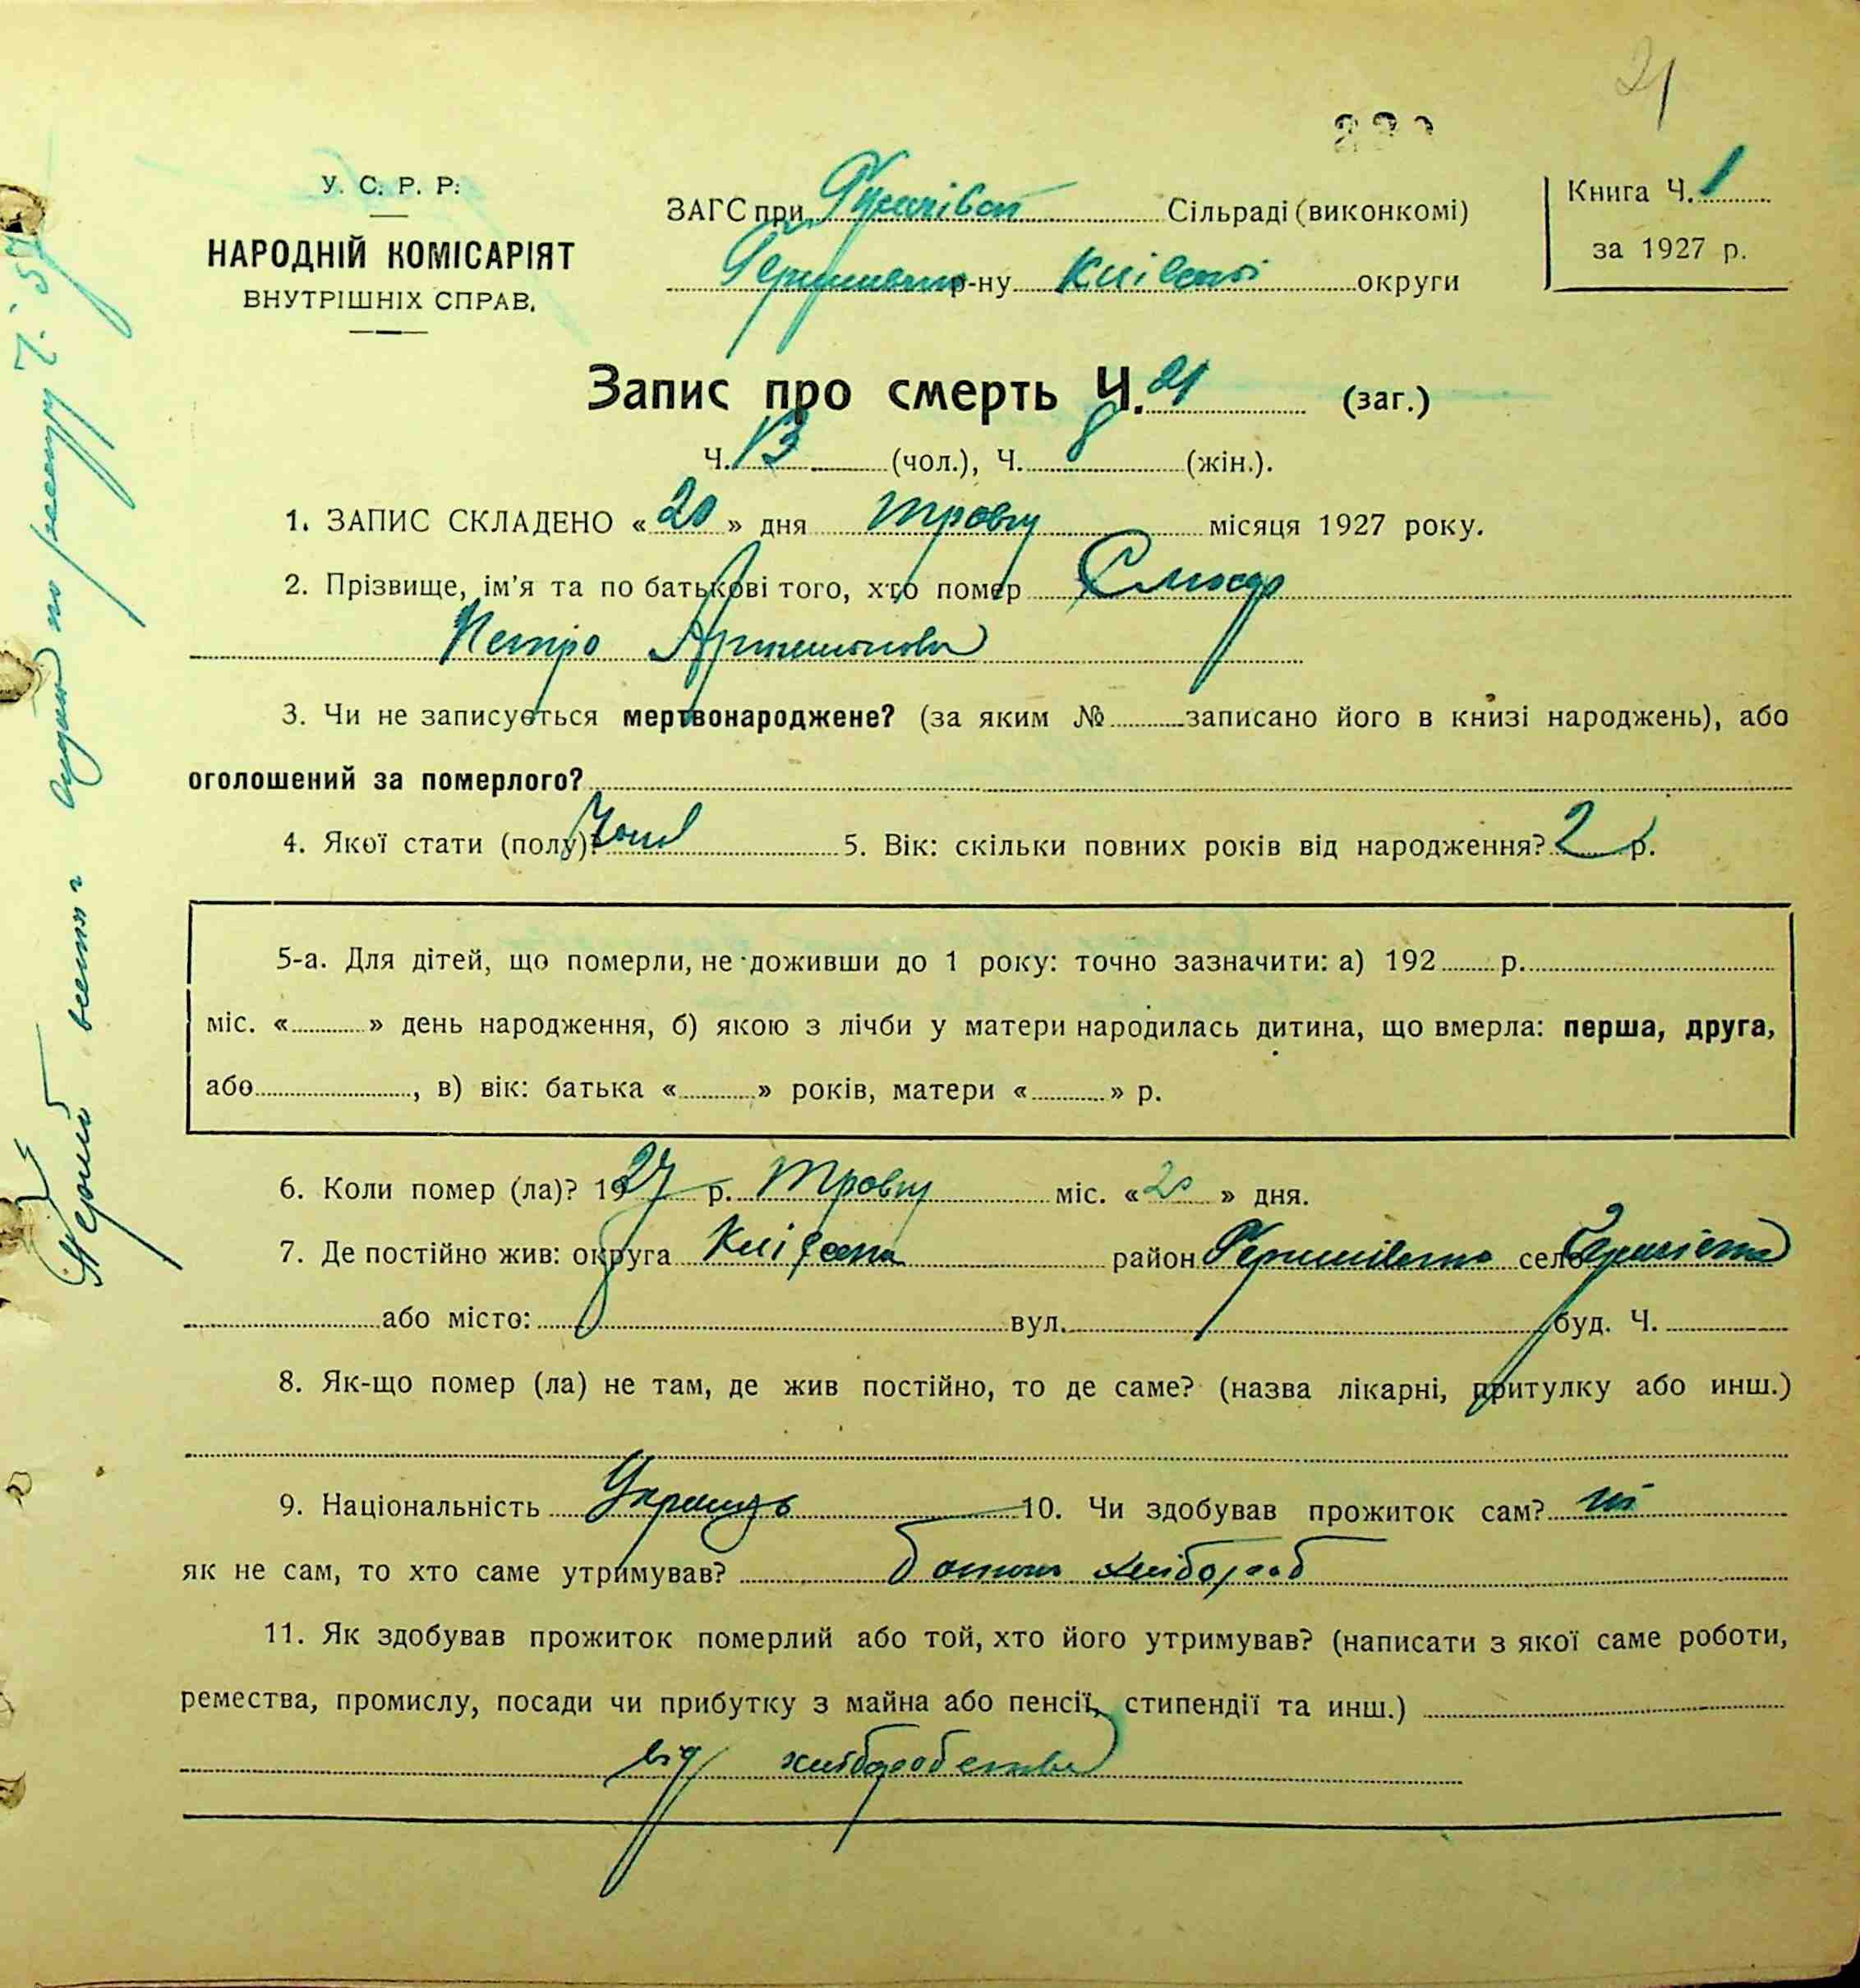 21
У. С. Р. Р.
НАРОДНІЙ КОМІСАРІЯТ
ВНУТРІШНІХ СПРАВ.
ЗАГС при Сільраді (виконкомі)
р-ну Київської округи
Книга Ч. 1
за 1927 р.
Запис про смерть Ч. 21 (заг.)
Ч. 13 (чол.), Ч. 8 (жін.).
1. ЗАПИС СКЛАДЕНО « 20 » дня травня місяця 1927 року.
2. Прізвище, ім'я та по батькові того, хто помер
Петро
3. Чи не записується мертвонароджене? (за яким № записано його в книзі народжень), або
оголошений за померлого?
4. Якої стати (полу)? Чол 5. Вік: скільки повних років від народження? 2 р.
5-а. Для дітей, що померли, не доживши до 1 року: точно зазначити: а) 192 р.
міс. « » день народження, б) якою з лічби у матери народилась дитина, що вмерла: перша, друга,
або , в) вік: батька « » років, матери « » р.
6. Коли помер (ла)? 1927 р. травня міс. « 20 » дня.
7. Де постійно жив: округа Київська район село
або місто: вул. буд. Ч.
8. Як-що помер (ла) не там, де жив постійно, то де саме? (назва лікарні, притулку або инш.)
9. Національність Українець 10. Чи здобував прожиток сам? ні
як не сам, то хто саме утримував? батько хлібороб
11. Як здобував прожиток померлий або той, хто його утримував? (написати з якої саме роботи,
ремества, промислу, посади чи прибутку з майна або пенсії, стипендії та инш.)
від хліборобства